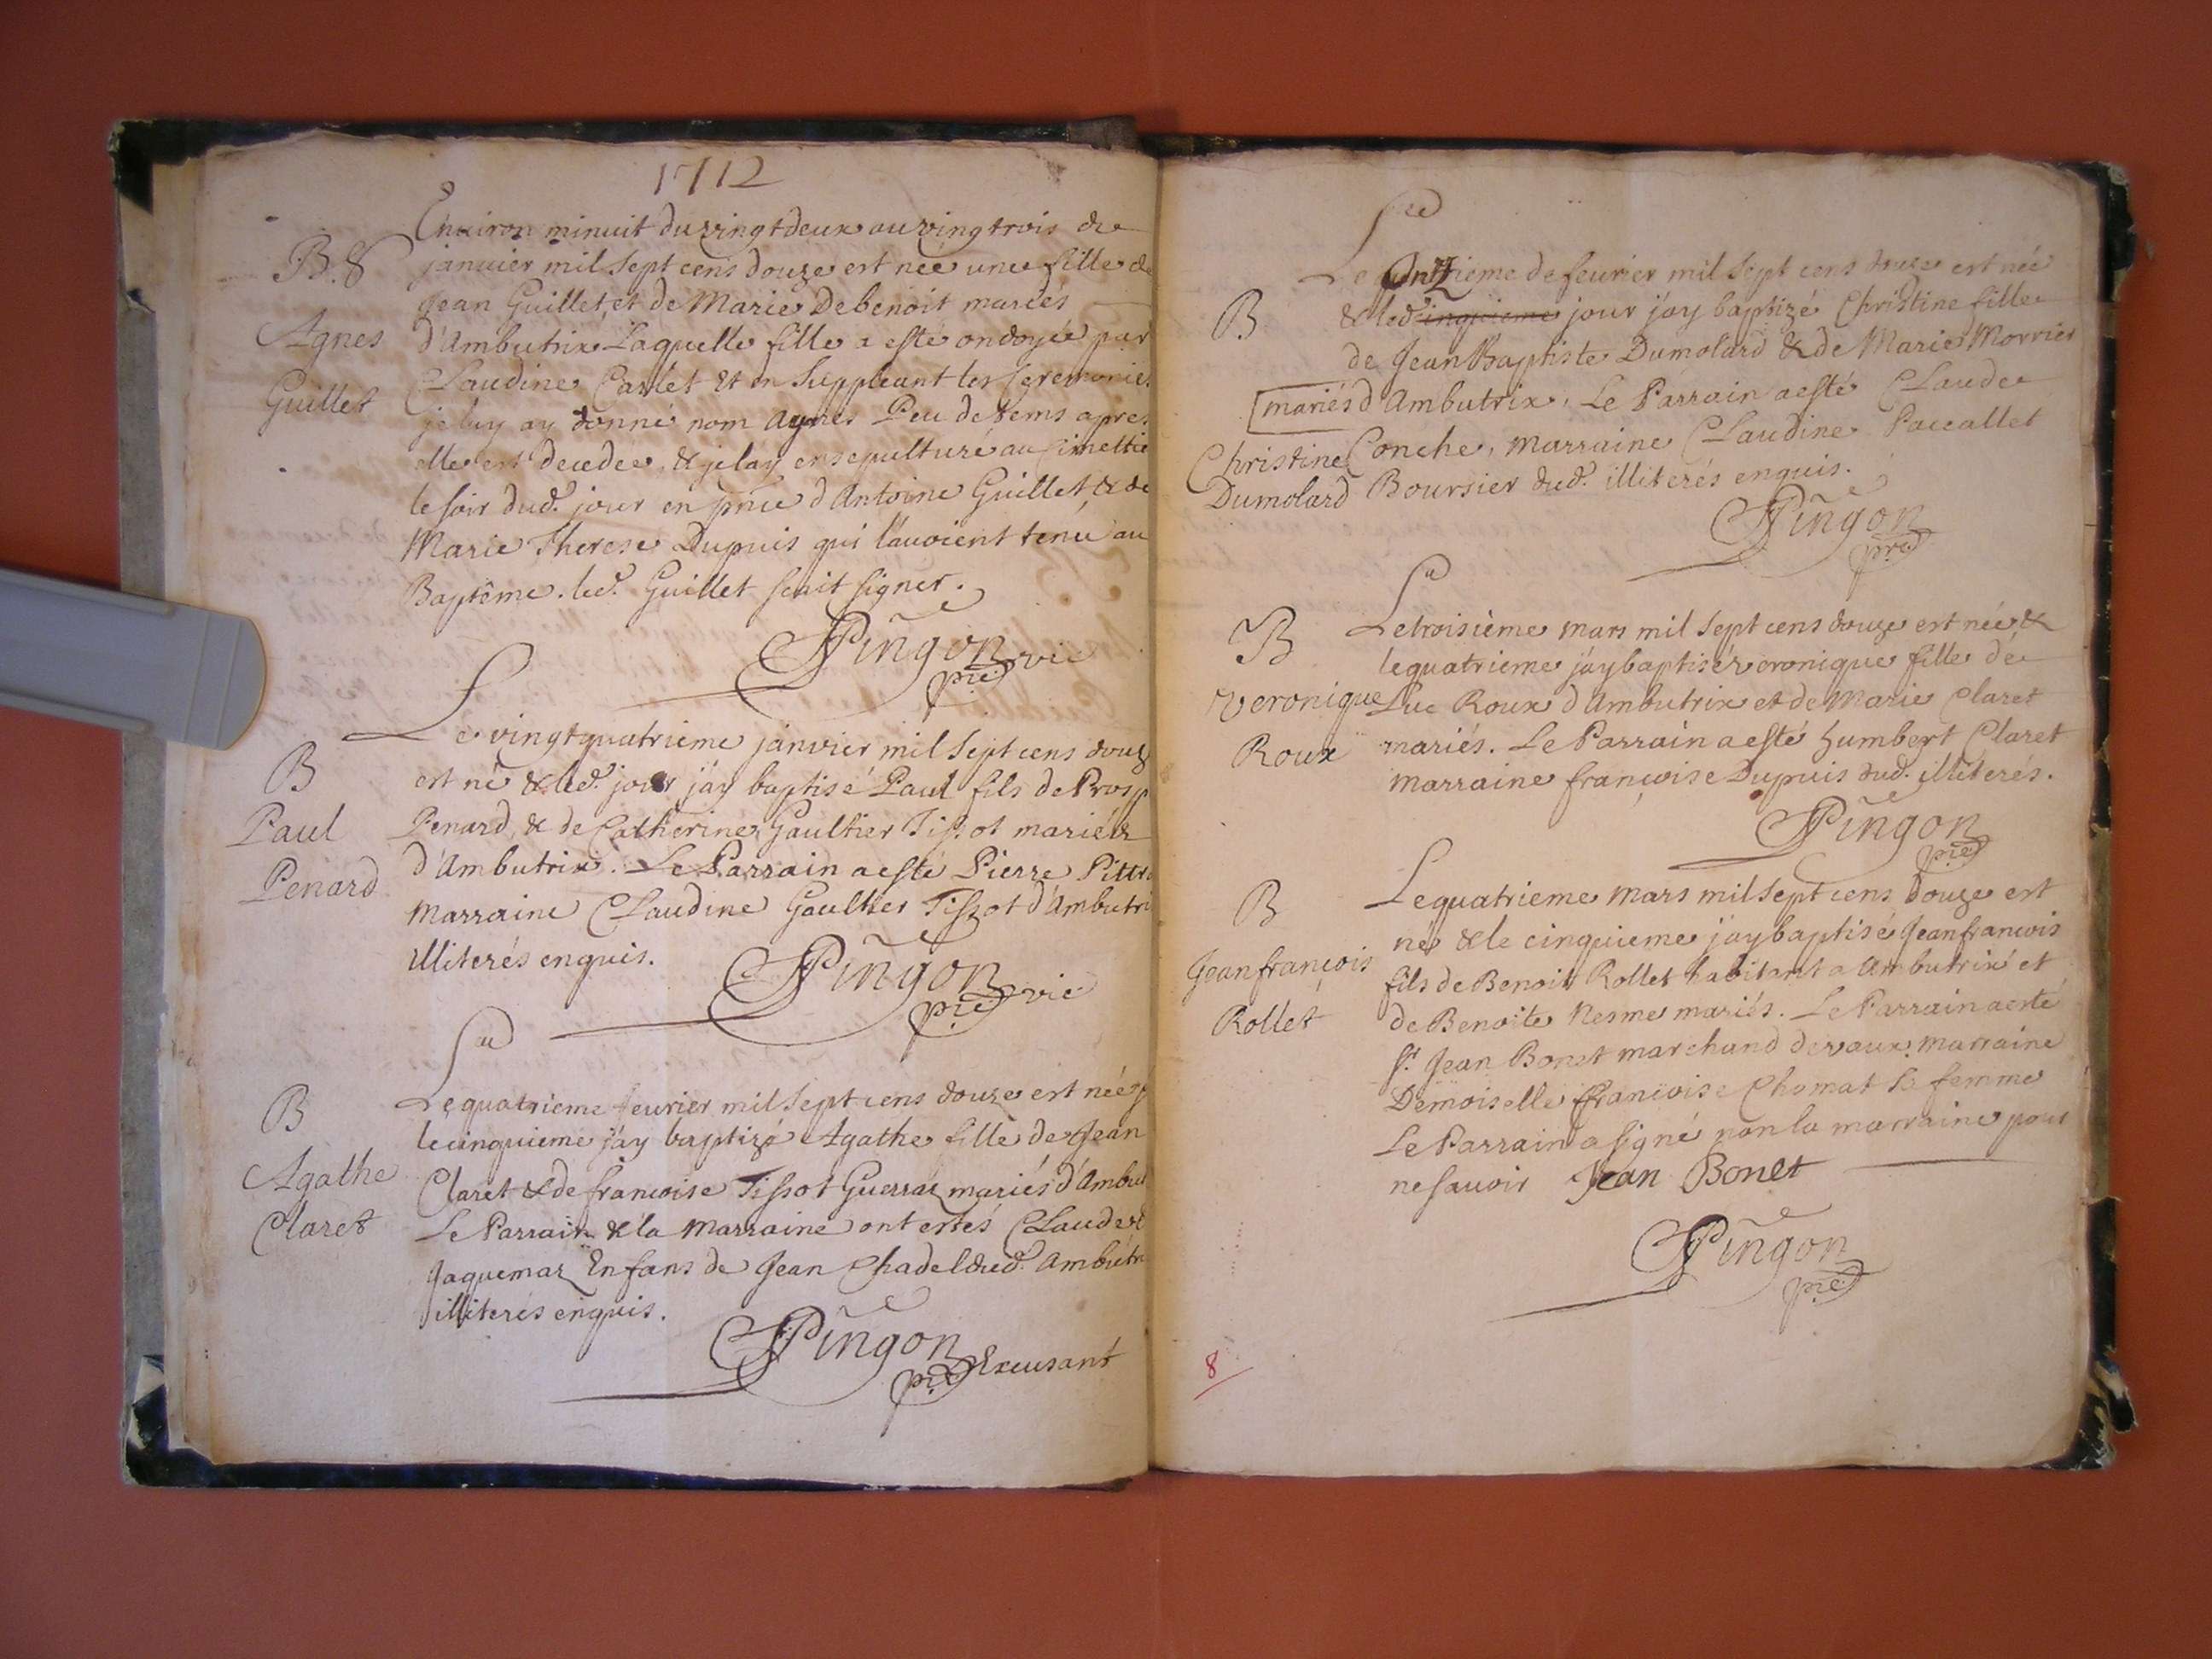 1712
Environ minuit du vingt deux au vingt trois de
B. 8
janvier mil sept cens douze est née une fille de
Jean Guillet, et de Marie Debenoit mariés
Agnes
d'Ambutrix Laquelle fille a esté ondoyée par
Guillet
Claudine Carlet Et en Suppleant les seremonies
je luy ay donné nom Agnes Peu de tems apres
elle est decedée, & je lay ensepulturé au Cimettie
le soir dud. jour en pnce d'Antoine Guillet & de
Marie Therese Dupuis qui l'avoient tenu au
Baptême. led. Guillet scait signer.
Pingon
pre vic
Le vingt quatrieme janvier mil sept cens douz
B
est né & led. jour j'ay baptisé Paul fils de Prosp
Paul
Penard, & de Catherine Gaultier Tissot mariés
Penard
d'Ambutrix. Le Parrain a esté Pierre Pittr
Marraine Claudine Gaultier Tissot d'Ambutri
illiterés enquis.
Pingon
pre vic
B
Le quatrieme feurier mil sept cens douze est née &
le cinquieme j'ay baptizé Agathe fille de Jean
Agathe
Claret & de francoise Tissot Guerraz mariés d'Ambut
Claret
Le Parrain & la Marraine ont estés Claude &
Jaquemaz Enfans de Jean Chadel dud. Ambutri
illiterés enquis.
Pingon
pre Excusant
Le Onzieme de feurier mil sept cens douze est née
B
& led cinquieme jour j'ay baptizé Christine fille
de Jean Baptiste Dumolard & de Marie Morrier
mariés d'Ambutrix, Le Parrain a esté Claude
Christine
Conche, marraine Claudine Paccallet
Dumolard
Boursier dud. illiterés enquis.
Pingon
pre
B
Le troisième mars mil sept cens douze est née &
le quatrieme j'ay baptisé veronique fille de
Veronique
Luc Roux d'Ambutrix et de Marie Claret
Roux
mariés. Le Parrain a esté humbert Claret
marraine françoise Dupuis dud. illiterés.
Pingon
pre
B
Le quatrieme mars mil sept cens douze est
né & le cinquieme j'ay baptisé Jeanfrancois
Jeanfrançois
fils de Benoit Rollet habitant a Ambutrix et
Rollet
de Benoite Nesme mariés. Le Parrain a esté
sr. Jean Bonet marchand de vaux. marraine
Demoiselle francoise Chomat sa femme
Le Parrain a signé non la marraine pour
ne sauoir Jean Bonet
Pingon
pre
8